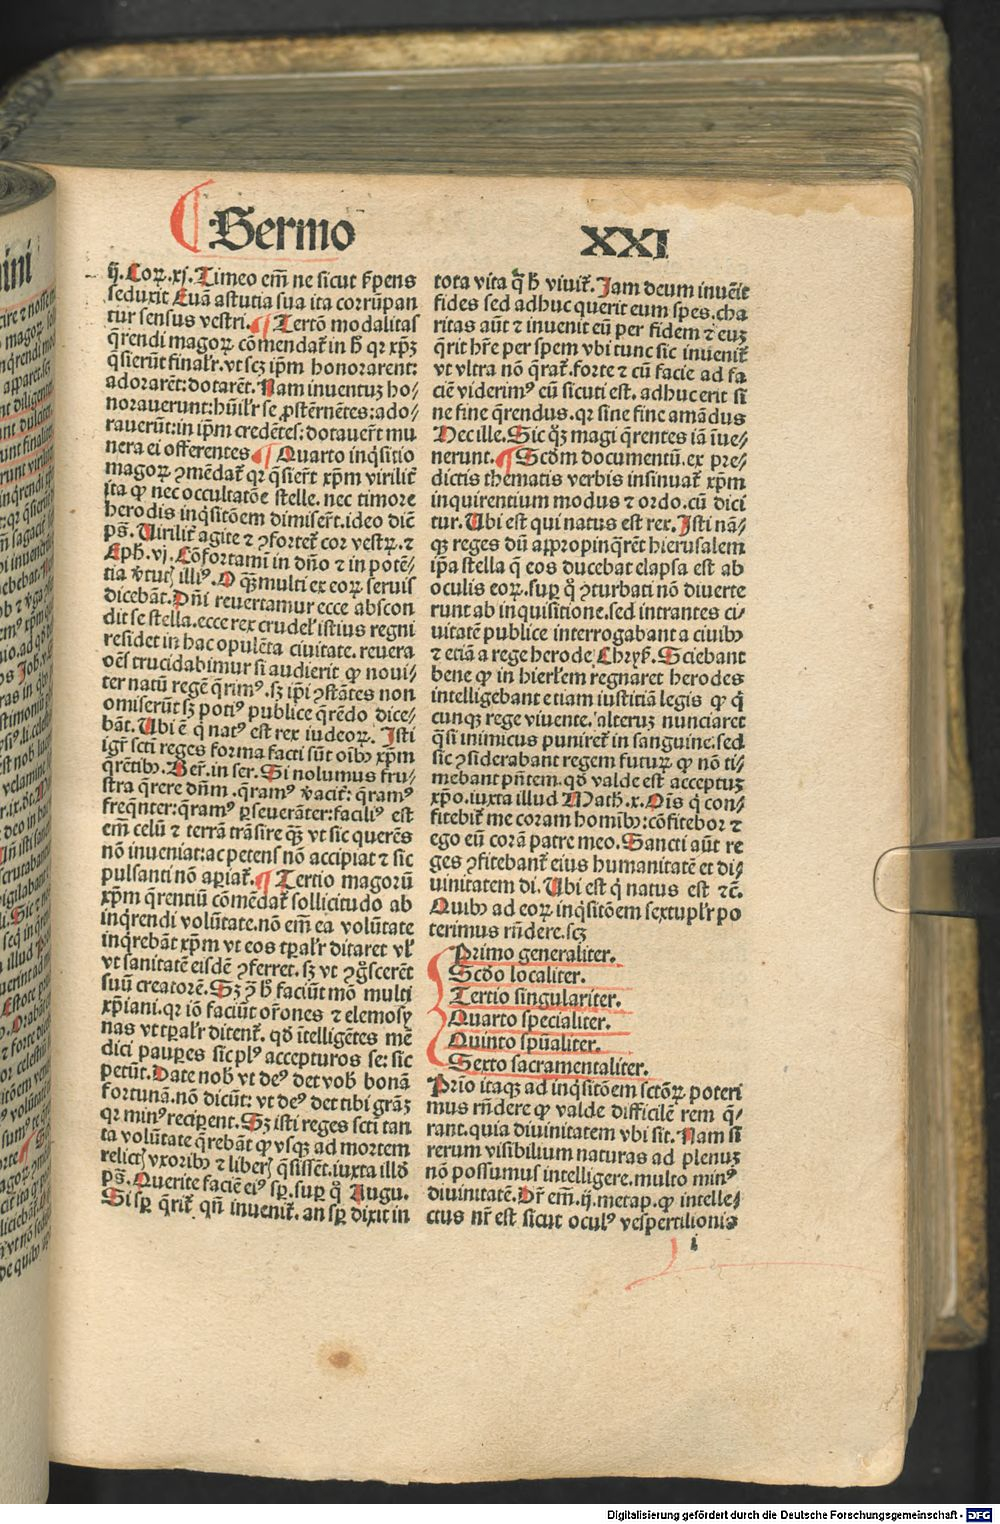 Sermo XXI
ij. Coꝝ. xj. Timeo em̄ ne sicut ẜpens
seduxit Euā astutia sua ita corrūpan
tur sensus vestri. ¶ Tertō modalitas
q̄rendi magoꝝ cōmendat᷑ in h̄ qꝛ xp̄ꝫ
q̄sierūt finalr̄. vt scꝫ ip̄m honorarent:
adorarēt: dotarēt. Nam inuentuꝫ ho⸗
norauerunt: hūilr̄ se ꝓstērnētes: ado⸗
rauerūt: in ip̄m credētes: dotauer̄t mu
nera ei offerentes ¶ Quarto inq̄sitio
magoꝝ ꝯmēdat᷑ qꝛ q̄sier̄t xp̄m virilit᷑
ita ꝙ nec occultatōe stelle. nec timore
herodis inq̄sitōem dimiser̄t. ideo dic̄
ps̄. Uirilit᷑ agite ⁊ ꝯfortet᷑ cor vestꝝ. ⁊
Eph̄. vj. Cōfortamī in dn̄o ⁊ in potē⸗
tia v̄tutꝭ illiꝰ. O qꝫ multi ex eoꝝ seruis
dicebāt. Dn̄i reuertamur ecce abscon
dit se stella. ecce rex crudel᷑ istius regni
residet in hac opulēta ciuitate. reuera
oēs trucidabimur si audierit ꝙ noui⸗
ter natū regē q̄rimꝰ. sꝫ ip̄i ꝯstātes non
omiserūt sꝫ potiꝰ publice q̄rēdo dice⸗
bāt. Ubi ē q̄ natꝰ est rex iudeoꝝ. Isti
igr̄ scti reges forma facti sūt oībꝰ xp̄m
q̄rētibꝰ. Ber̄. in ser. Si nolumus fru⸗
stra q̄rere dn̄m. q̄ramꝰ v̄acit᷑: q̄ramꝰ
freq̄nter: q̄ramꝰ ꝑseuerāter: faciliꝰ est
em̄ celū ⁊ terrā trāsire qꝫ vt sic querēs
nō inueniat: ac petens nō accipiat ⁊ sic
pulsanti nō apiat᷑. ¶ Tertio magorū
xp̄m q̄rentiū cōmēdat᷑ sollicitudo ab
inq̄rendi volūtate. nō em̄ ea volūtate
inq̄rebāt xp̄m vt eos tꝑalr̄ ditaret vl᷑
vt sanitatē eisdē ꝯferret. sꝫ vt ꝯgscerēt
suū creatorē. Sꝫ ꝯ h̄ faciūt mō multi
xp̄iani. qꝛ iō faciūt or̄ones ⁊ elemosy
nas vt tꝑalr̄ ditent᷑. qd̄ ītelligētes mē
dici pauꝑes sic plꝰ accepturos se: sic
petūt. Date nob̄ vt deꝰ det vob̄ bonā
fortunā. nō dicūt: vt deꝰ det tibi grāꝫ
qꝛ minꝰ reciꝑent. Sꝫ isti reges scti tan
ta volūtate q̄rebāt ꝙ vsqꝫ ad mortem
relictꝭ vxoribꝰ ⁊ liberꝭ q̄sissēt. iuxta illd̄
ps̄. Querite faciē eiꝰ sꝑ. suꝑ q̊ Augu.
Si sꝑ q̄rit᷑ qn̄ inuenit᷑. an sꝑ dixit in
tota vita q̄ h̄ viuit᷑. Iam deum inuēit
fides sed adhuc querit eum spes. cha
ritas aūt ⁊ inuenit eū per fidem ⁊ euꝫ
q̄rit hr̄e per spem vbi tunc sic inuenit᷑
vt vltra nō q̄rat᷑. forte ⁊ cū facie ad fa
ciē viderimꝰ eū sicuti est. adhuc erit si
ne fine q̄rendus. qꝛ sine fine amādus
Nec ille. Sic qꝫ magi q̄rentes iā īue⸗
nerunt. ¶ Scd̄m documentū. ex pre⸗
dictis thematis verbis insinuat᷑ xp̄m
inquirentium modus ⁊ ordo. cū dici
tur. Ubi est qui natus est rex. Isti nā⸗
qꝫ reges dū appropinq̄rēt hierusalem
ip̄a stella q̄ eos ducebat elapsa est ab
oculis eoꝝ. suꝑ q̊ ꝯturbati nō diuerte
runt ab inquisitione. sed intrantes ci⸗
uitatē publice interrogabant a ciuibꝰ
⁊ etiā a rege herode Chrys̄. Sciebant
bene ꝙ in hierlem regnaret herodes
intelligebant etiam iustitiā legis ꝙ q̄
cunqꝫ rege viuente. alteruꝫ nunciaret
q̄si inimicus puniret᷑ in sanguine. sed
sic ꝯsiderabant regem futuꝝ ꝙ nō ti⸗
mebant pn̄tem. qd̄ valde est acceptuꝫ
xp̄o. iuxta illud Math. x. Oīs q̄ con⸗
fitebit᷑ me coram homībꝰ: cōfitebor ⁊
ego eū corā patre meo. Sancti aūt re
ges ꝯfitebant᷑ eius humanitatē et di⸗
uinitatem di. Ubi est q̄ natus est ⁊c̄.
Quibꝰ ad eoꝝ inq̄sitōem sextuplr̄ po
terimus rn̄dere. scꝫ
Primo generaliter.
Scd̄o localiter.
Tertio singulariter.
Quarto specialiter.
Quinto spūaliter.
Sexto sacramentaliter.
Prio itaqꝫ ad inq̄sitōem sctōꝝ poteri
mus rn̄dere ꝙ valde difficilē rem q̄⸗
rant. quia diuinitatem vbi sit. Nam si
rerum visibilium naturas ad plenuꝫ
nō possumus intelligere. multo minꝰ
diuinitatē. Dr̄ em̄. ij. metap. ꝙ intelle⸗
ctus nr̄ est sicut oculꝰ vespertilionis
i
Digitalisierung gefördert durch die Deutsche Forschungsgemeinschaft - DFG